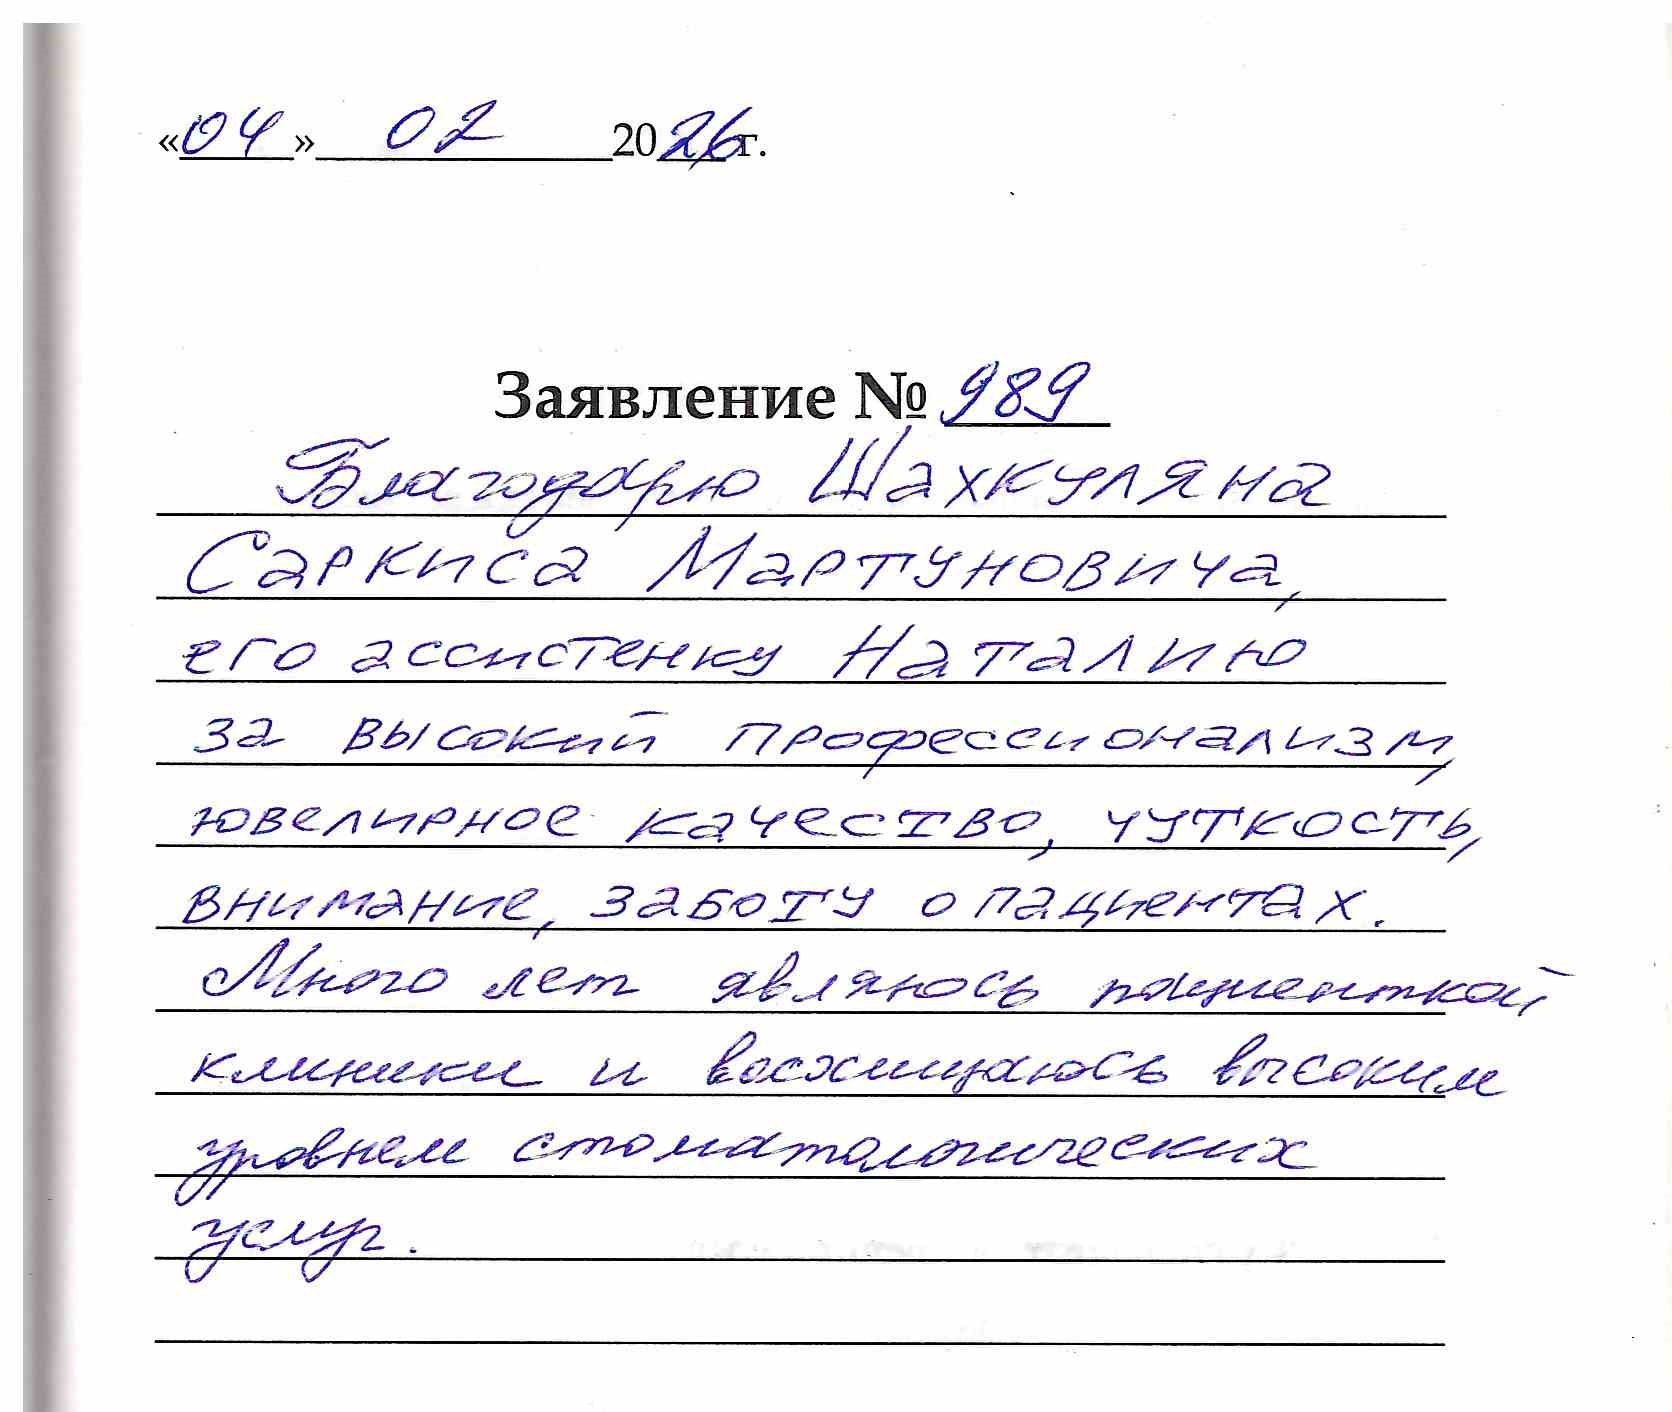 «04» 02 2026 г.
Заявление № 989
Благодарю Шахкуляна
Саркиса Мартуновича,
его ассистенку Наталию
за высокий профессионализм,
ювелирное качество, чуткость,
внимание, заботу о пациентах.
Много лет являюсь пациенткой
клиники и восхищаюсь высоким
уровнем стоматологических
услуг.